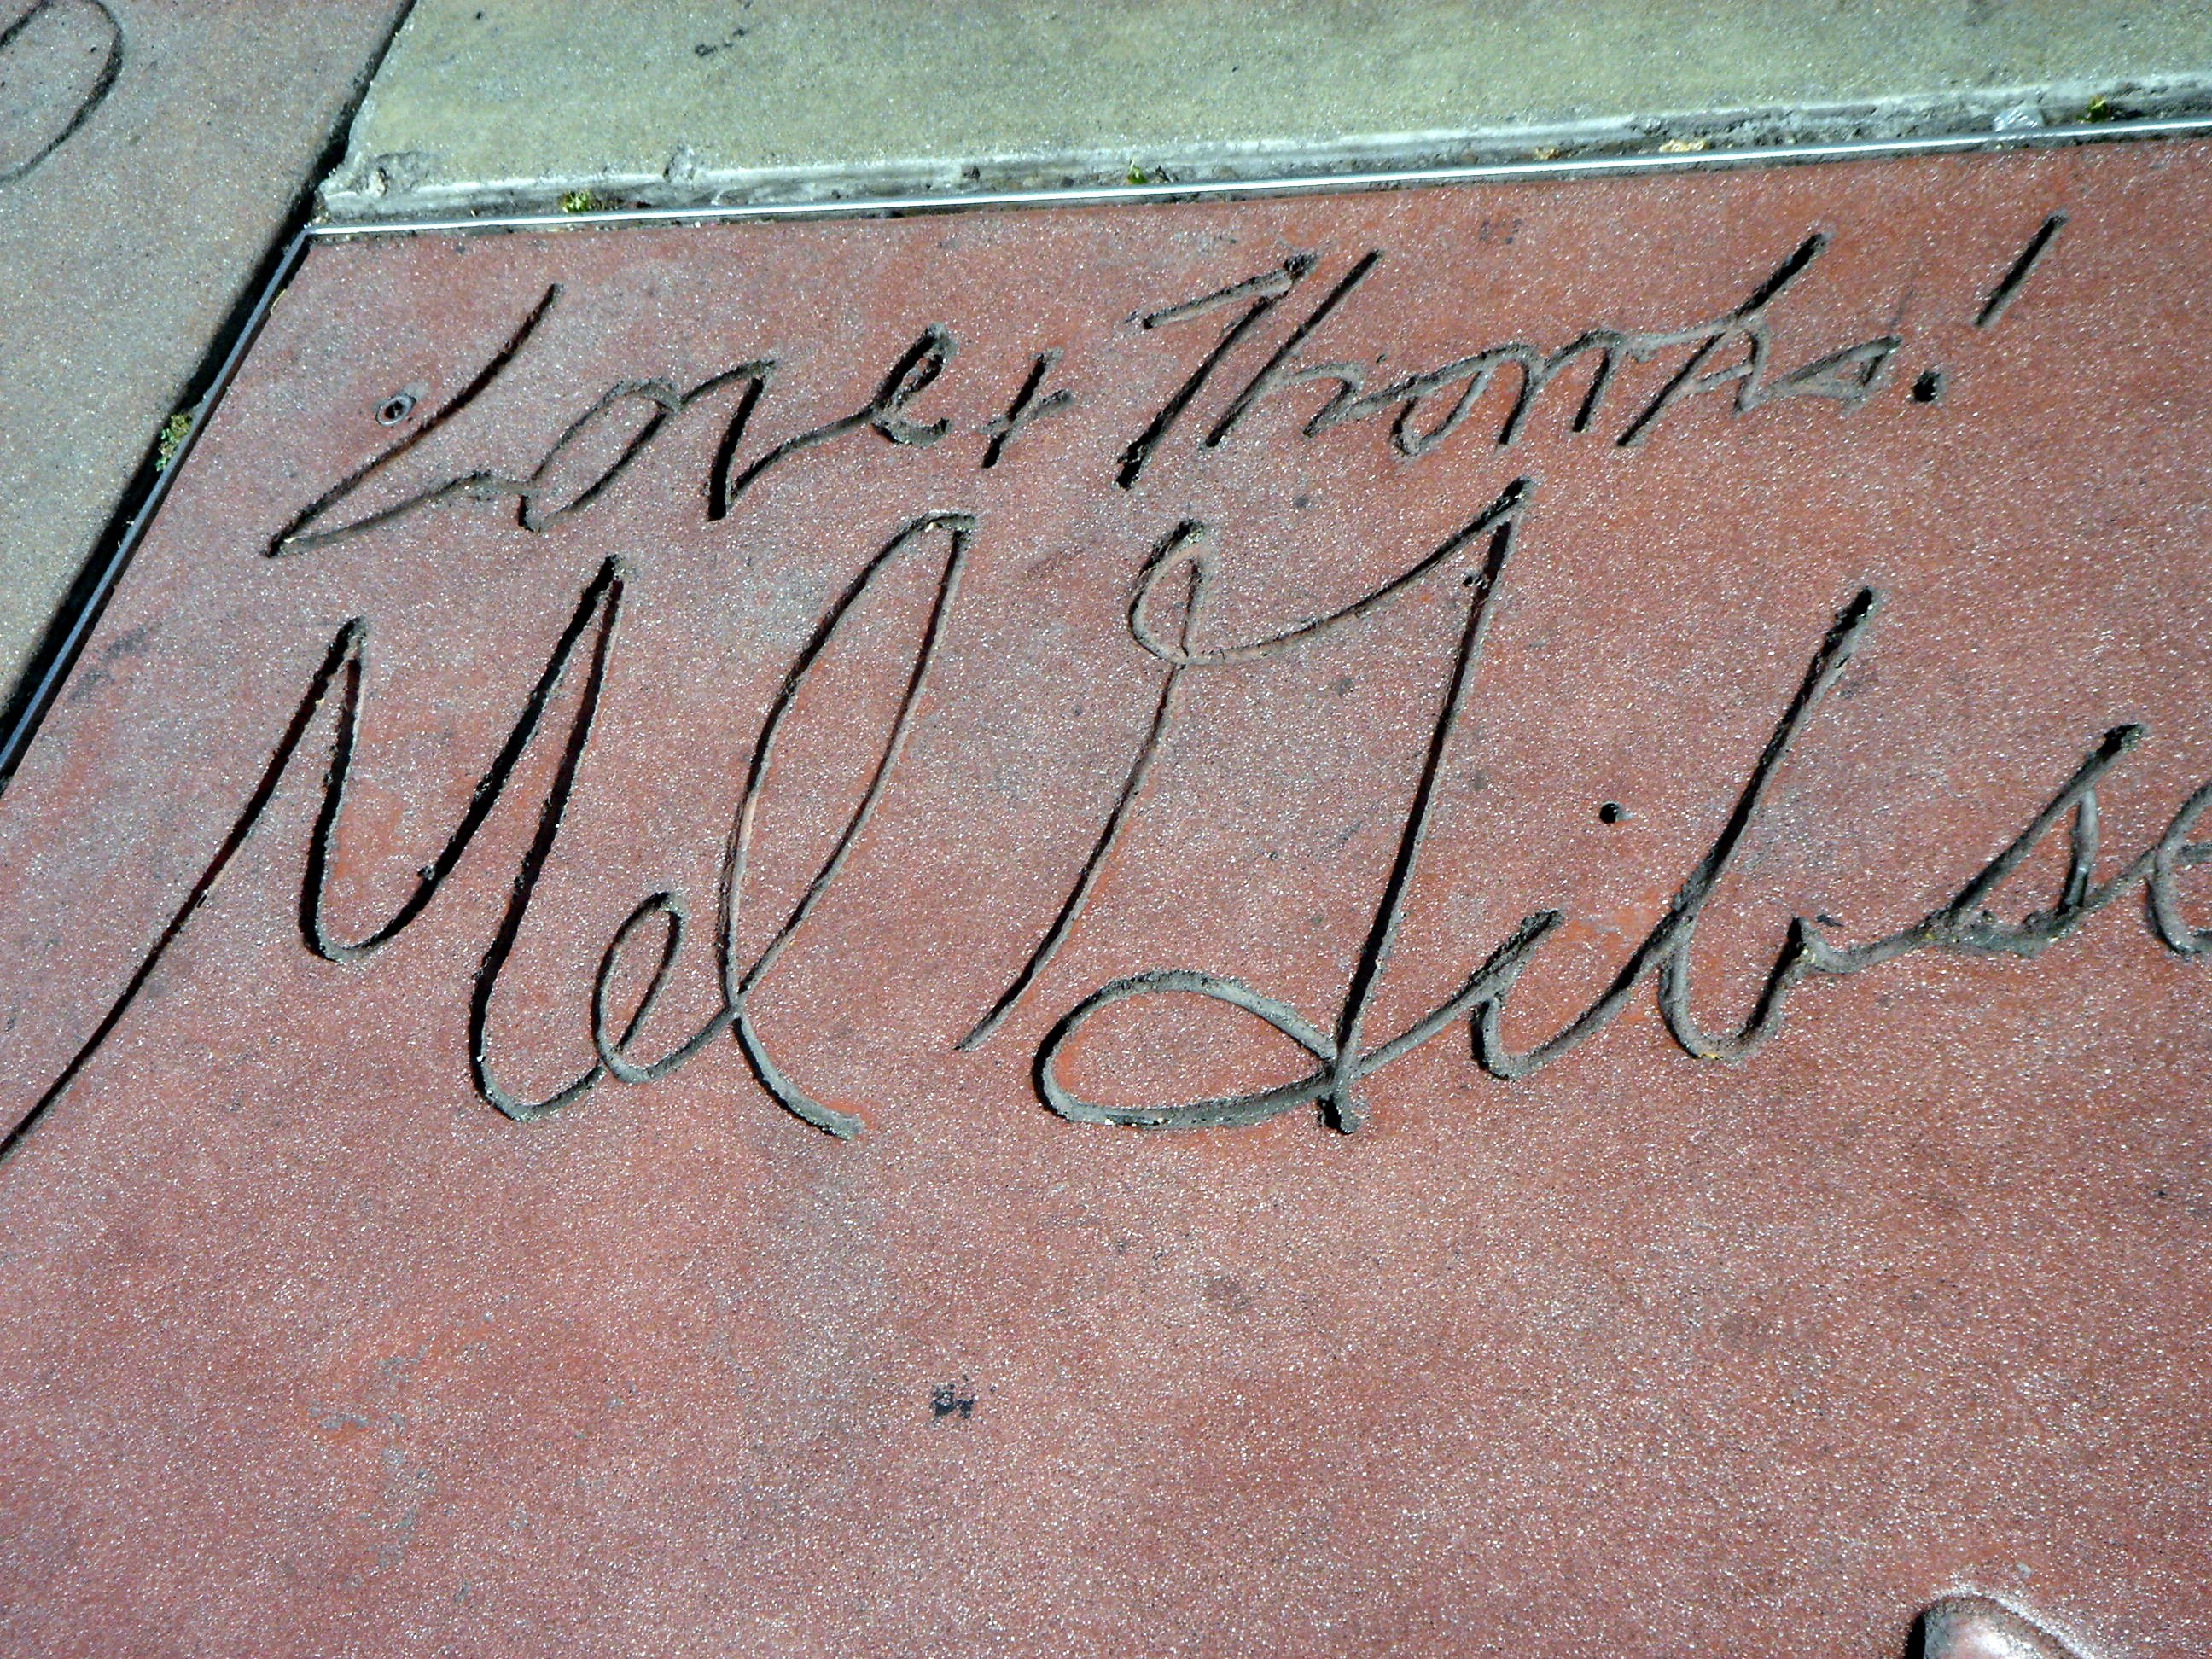 Love + Thanks!
Mel Gibso